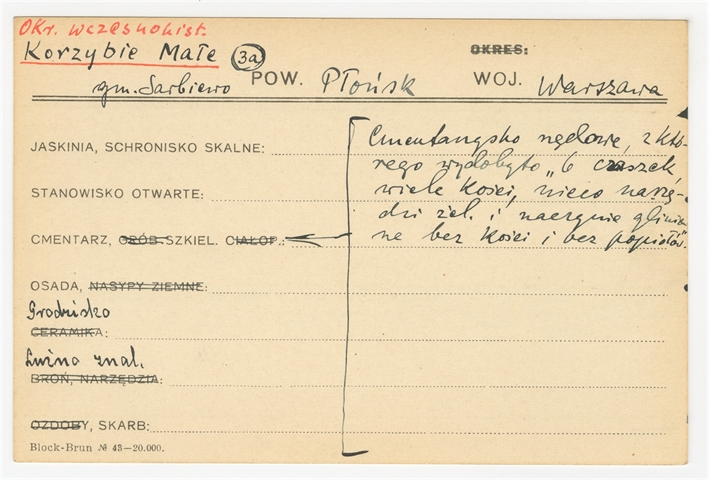 OKr. wczesnohist.
Korzybie Małe (3a)
OKRES:
gm. Sarbiewo POW. Płońsk WOJ. Warszawa
JASKINIA, SCHRONISKO SKALNE:
STANOWISKO OTWARTE:
CMENTARZ, GRÓB SZKIEL. CIAŁOP.:
OSADA, NASYPY ZIEMNE:
Grodzisko
CERAMIKA:
Luźno znal.
BROŃ, NARZĘDZIA:
OZDOBY, SKARB:
Block-Brun № 43—20.000.
Cmentarzysko rzędowe, z któ-
rego wydobyto „6 czaszek
wiele kości, nieco narzę-
dzi żel. i naczynie glinia-
ne bez kości i bez popiołów".